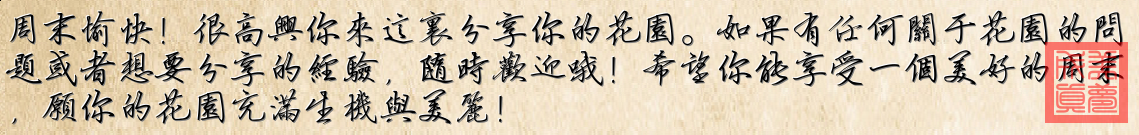 周末愉快！很高興你來這裏分享你的花園。如果有任何關于花園的問
題或者想要分享的經驗，隨時歡迎哦！希望你能享受一個美好的周末
，願你的花園充滿生機與美麗！